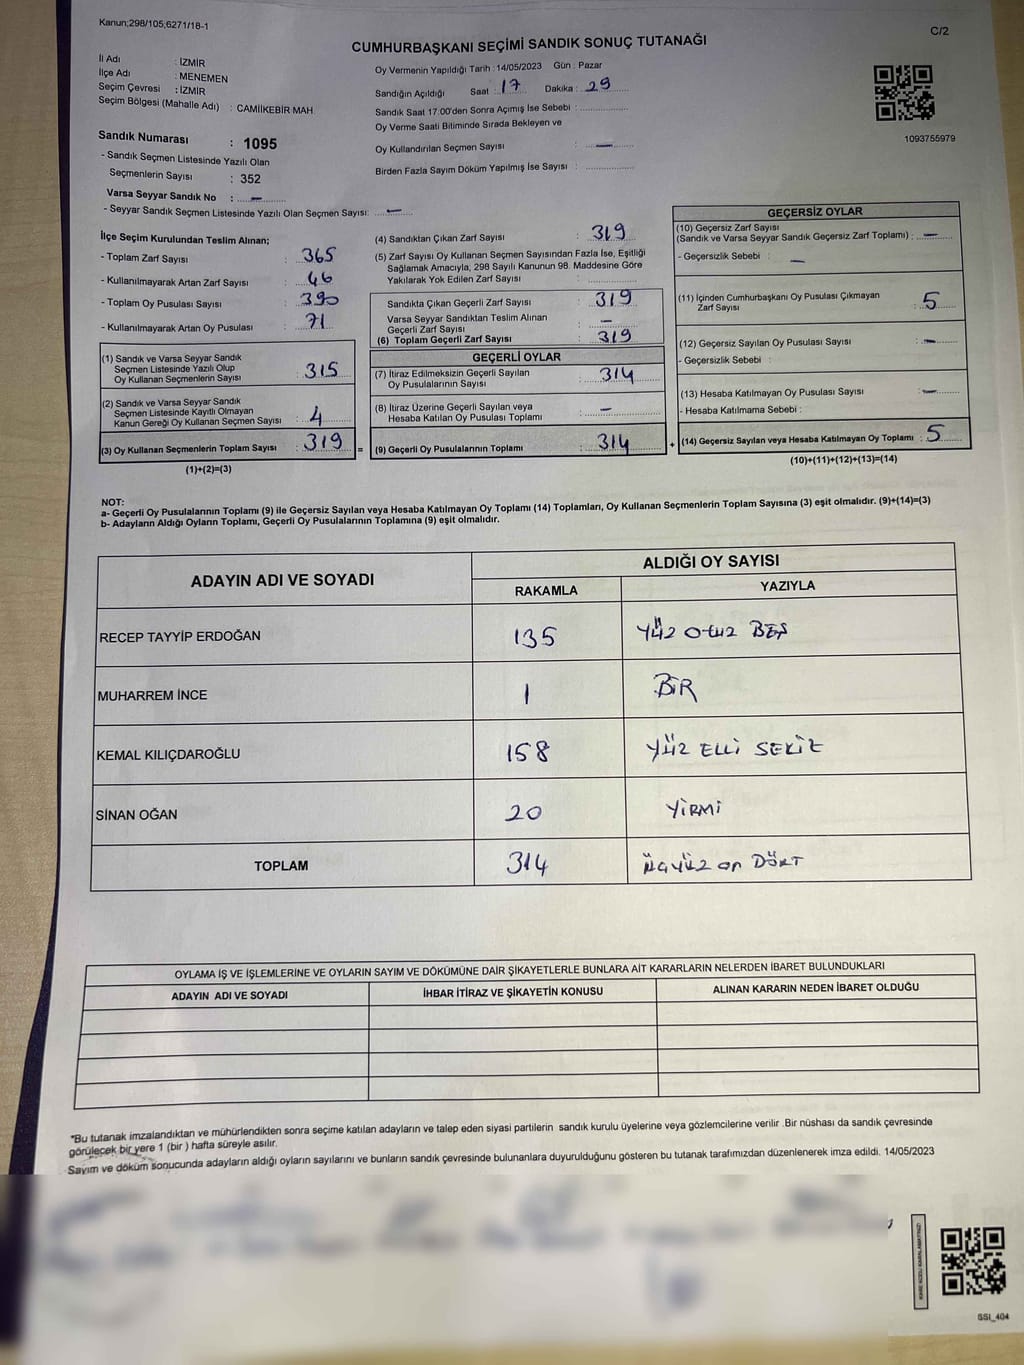 Kanun;298/105;6271/18-1
C/2
CUMHURBAŞKANI SEÇİMİ SANDIK SONUÇ TUTANAĞI
İl Adı : İZMİR
İlçe Adı : MENEMEN
Seçim Çevresi : İZMİR
Seçim Bölgesi (Mahalle Adı) : CAMİİKEBİR MAH
Oy Vermenin Yapıldığı Tarih : 14/05/2023 Gün : Pazar
Sandığın Açıldığı Saat : 17 Dakika : 29
Sandık Saat 17:00'den Sonra Açımış İse Sebebi :
Oy Verme Saati Bitiminde Sırada Bekleyen ve
Oy Kullandırılan Seçmen Sayısı : —
Birden Fazla Sayım Döküm Yapılmış İse Sayısı :
1093755979
Sandık Numarası : 1095
- Sandık Seçmen Listesinde Yazılı Olan
Seçmenlerin Sayısı : 352
Varsa Seyyar Sandık No : —
- Seyyar Sandık Seçmen Listesinde Yazılı Olan Seçmen Sayısı: —
İlçe Seçim Kurulundan Teslim Alınan;
- Toplam Zarf Sayısı : 365
- Kullanılmayarak Artan Zarf Sayısı : 46
- Toplam Oy Pusulası Sayısı : 390
- Kullanılmayarak Artan Oy Pusulası : 71
(1) Sandık ve Varsa Seyyar Sandık
Seçmen Listesinde Yazılı Olup
Oy Kullanan Seçmenlerin Sayısı : 315
(2) Sandık ve Varsa Seyyar Sandık
Seçmen Listesinde Kayıtlı Olmayan
Kanun Gereği Oy Kullanan Seçmen Sayısı : 4
(3) Oy Kullanan Seçmenlerin Toplam Sayısı : 319
(1)+(2)=(3)
(4) Sandıktan Çıkan Zarf Sayısı : 319
(5) Zarf Sayısı Oy Kullanan Seçmen Sayısından Fazla İse, Eşitliği
Sağlamak Amacıyla, 298 Sayılı Kanunun 98. Maddesine Göre
Yakılarak Yok Edilen Zarf Sayısı :
Sandıkta Çıkan Geçerli Zarf Sayısı : 319
Varsa Seyyar Sandıktan Teslim Alınan
Geçerli Zarf Sayısı : —
(6) Toplam Geçerli Zarf Sayısı : 319
GEÇERLİ OYLAR
(7) İtiraz Edilmeksizin Geçerli Sayılan
Oy Pusulalarının Sayısı : 314
(8) İtiraz Üzerine Geçerli Sayılan veya
Hesaba Katılan Oy Pusulası Toplamı : —
= (9) Geçerli Oy Pusulalarının Toplamı : 314
GEÇERSİZ OYLAR
(10) Geçersiz Zarf Sayısı
(Sandık ve Varsa Seyyar Sandık Geçersiz Zarf Toplamı) : —
- Geçersizlik Sebebi : —
(11) İçinden Cumhurbaşkanı Oy Pusulası Çıkmayan
Zarf Sayısı : 5
(12) Geçersiz Sayılan Oy Pusulası Sayısı : —
- Geçersizlik Sebebi :
(13) Hesaba Katılmayan Oy Pusulası Sayısı : —
- Hesaba Katılmama Sebebi :
+ (14) Geçersiz Sayılan veya Hesaba Katılmayan Oy Toplamı : 5
(10)+(11)+(12)+(13)=(14)
NOT:
a- Geçerli Oy Pusulalarının Toplamı (9) ile Geçersiz Sayılan veya Hesaba Katılmayan Oy Toplamı (14) Toplamları, Oy Kullanan Seçmenlerin Toplam Sayısına (3) eşit olmalıdır. (9)+(14)=(3)
b- Adayların Aldığı Oyların Toplamı, Geçerli Oy Pusulalarının Toplamına (9) eşit olmalıdır.
ADAYIN ADI VE SOYADI ALDIĞI OY SAYISI
RAKAMLA YAZIYLA
RECEP TAYYİP ERDOĞAN 135 YÜZ Otuz BEŞ
MUHARREM İNCE 1 BİR
KEMAL KILIÇDAROĞLU 158 YÜZ ELLİ SEKİZ
SİNAN OĞAN 20 YİRMİ
TOPLAM 314 ÜÇYÜZ on DÖRT
OYLAMA İŞ VE İŞLEMLERİNE VE OYLARIN SAYIM VE DÖKÜMÜNE DAİR ŞİKAYETLERLE BUNLARA AİT KARARLARIN NELERDEN İBARET BULUNDUKLARI
ADAYIN ADI VE SOYADI İHBAR İTİRAZ VE ŞİKAYETİN KONUSU ALINAN KARARIN NEDEN İBARET OLDUĞU
*Bu tutanak imzalandıktan ve mühürlendikten sonra seçime katılan adayların ve talep eden siyasi partilerin sandık kurulu üyelerine veya gözlemcilerine verilir .Bir nüshası da sandık çevresinde
görülecek bir yere 1 (bir ) hafta süreyle asılır.
Sayım ve döküm sonucunda adayların aldığı oyların sayılarını ve bunların sandık çevresinde bulunanlara duyurulduğunu gösteren bu tutanak tarafımızdan düzenlenerek imza edildi. 14/05/2023
SSI_404